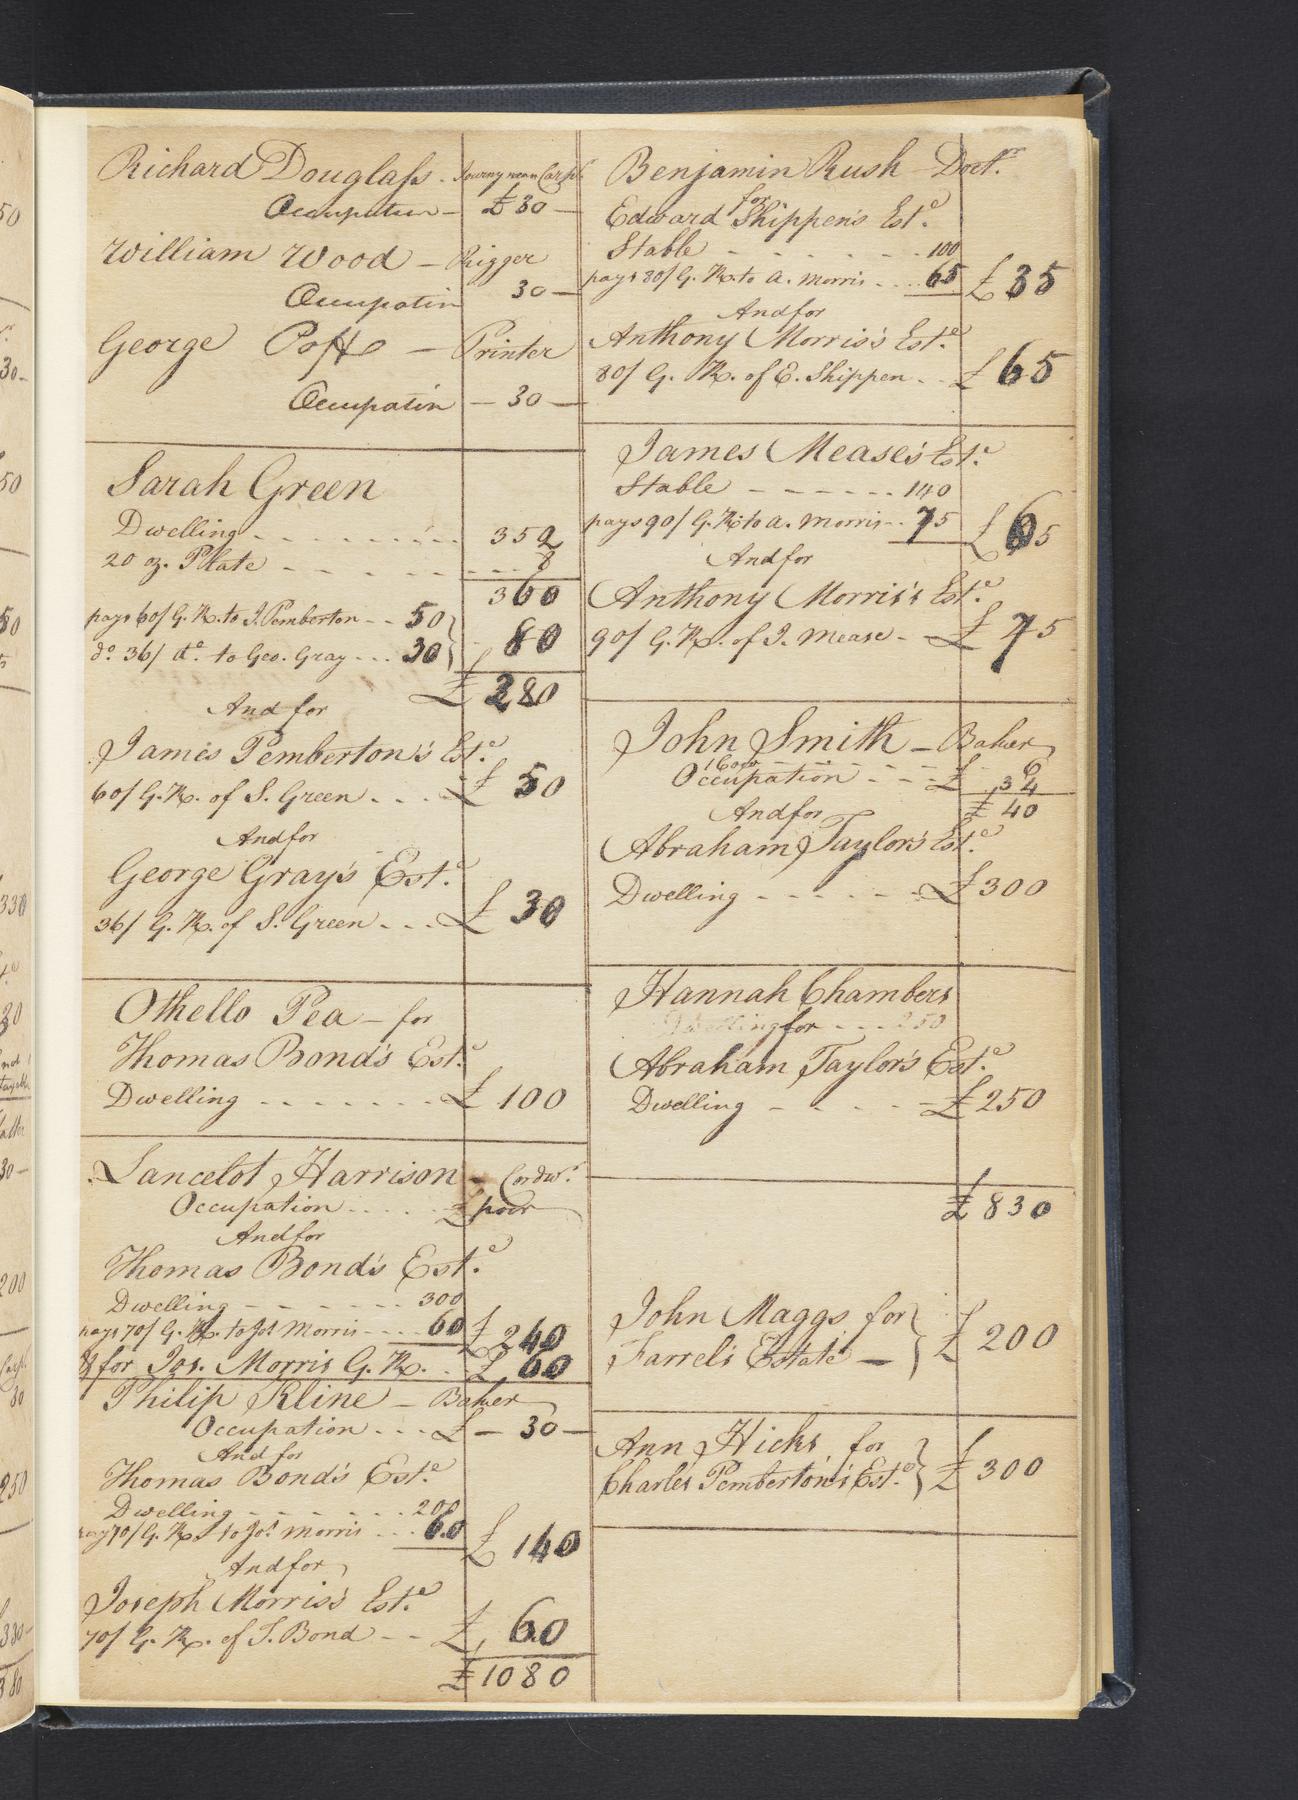 Richard Douglass - Journyman Carpr.
Occupation - £ 30 -
William Wood - Rigger
Occupatin 30 -
George Potts - Printer
Occupatin - 30 -
Sarah Green
Dwelling 352
20 oz. Plate 8
360
pays 60/ G. R. to J. Pemberton - - 50
do. 36/ do. to Geo. Gray - - - 30 } 80
£ 280
And for
James Pemberton's Este.
60/ G. R. of S. Green - - - £ 50
And for
George Gray's Este.
36/ G. R. of S. Green - - - £ 30
Othello Pea - for
Thomas Bond's Este.
Dwelling - - - - - - - £ 100
Lancelot Harrison - Cordwr.
Occupation - - - - - £ poor
And for
Thomas Bond's Este.
Dwelling - - - - - - 300
pays 70/ G. R. to Jos. Morris - - - 60 £ 240
& for Jos. Morris G. R. - £ 60
Philip Kline - Baker
Occupation - - - £ - 30 -
And for
Thomas Bond's Este.
Dwelling - - - - - - 200
pay 70/ G. R. to Jos. Morris - - - 60 £ 140
And for
Joseph Morris's Este.
70/ G. R. of T. Bond - - £ 60
£ 1080
Benjamin Rush Doctr.
for
Edward Shippen's Este.
Stable - - - - - - - 100
pays 80/ G. R. to A. Morris - - - 65 £ 35
And for
Anthony Morris's Este.
80/ G. R. of E. Shippen - - £ 65
James Mease's Este.
Stable - - - - - - 140
pays 90/ G. R. to A. Morris - - 75 £ 65
And for
Anthony Morris's Este.
90/ G. R. of J. Mease - £ 75
John Smith - Baker
16 oz. - - - - - 6
Occupation - - - £ 34
And for £ 40
Abraham Taylor's Este.
Dwelling - - - - - - £ 300
Hannah Chambers
Dwelling for - - - 250
Abraham Taylor's Este.
Dwelling - - - - £ 250
£ 830
John Maggs for
Farrel's Estate - } £ 200
Ann Hicks for
Charles Pemberton's Este. } £ 300